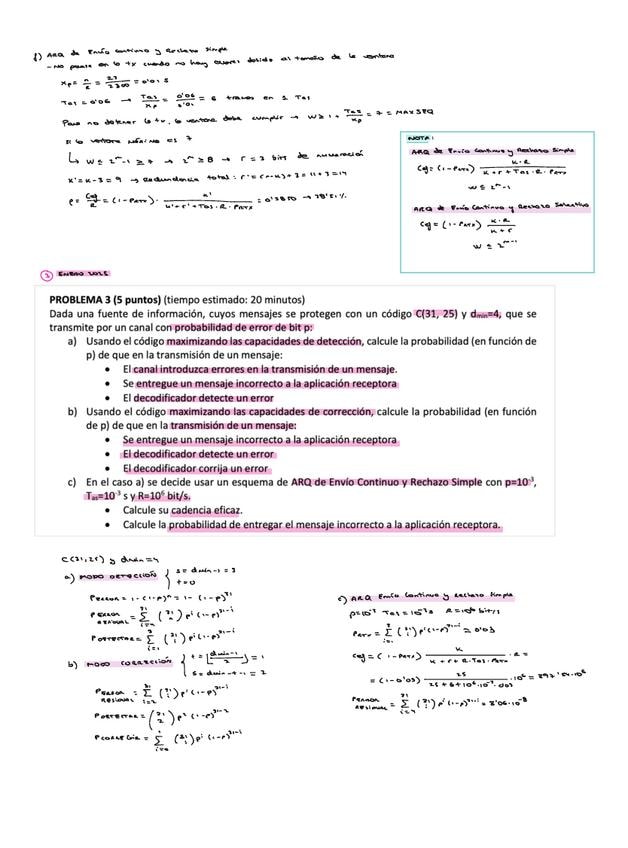 f) ARQ de Envío continuo y Rechazo Simple
- No parase en la tx cuando no hay errores debido al tamaño de la ventana
Xp = n/R = 23/2300 = 0'01 s
Tas = 0'06 → Tas/Xp = 0'06/0'01 = 6 tramas en 1 Tas
Para no detener la tx, la ventana debe cumplir → W ≥ 1 + Tas/Xp = 7 = MAX SEQ
Si la ventana máxima es 7
↳ W ≤ 2^m - 1 ≥ 7 → 2^m ≥ 8 → r = 3 bits de numeración
K' = K - 3 = 9 → Redundancia total: r' = (n-k) + 3 = 11 + 3 = 14
ρ = Cef/R = (1 - PRTX) · K'/(K' + r' + Tas · R · PRTX) = 0'3850 → 38'5%
NOTA:
ARQ de Envío Continuo y Rechazo Simple
Cef = (1 - PRTX) K·R/(K + r + Tas · R · PRTX)
W ≤ 2^m - 1
ARQ de Envío Continuo y Rechazo Selectivo
Cef = (1 - PRTX) K·R/(K + r)
W ≤ 2^(m-1)
③ ENERO 2025
PROBLEMA 3 (5 puntos) (tiempo estimado: 20 minutos)
Dada una fuente de información, cuyos mensajes se protegen con un código C(31, 25) y dmin=4, que se
transmite por un canal con probabilidad de error de bit p:
a) Usando el código maximizando las capacidades de detección, calcule la probabilidad (en función de
p) de que en la transmisión de un mensaje:
• El canal introduzca errores en la transmisión de un mensaje.
• Se entregue un mensaje incorrecto a la aplicación receptora
• El decodificador detecte un error
b) Usando el código maximizando las capacidades de corrección, calcule la probabilidad (en función
de p) de que en la transmisión de un mensaje:
• Se entregue un mensaje incorrecto a la aplicación receptora
• El decodificador detecte un error
• El decodificador corrija un error
c) En el caso a) se decide usar un esquema de ARQ de Envío Continuo y Rechazo Simple con p=10⁻³,
Tas=10⁻³ s y R=10⁶ bit/s.
• Calcule su cadencia eficaz.
• Calcule la probabilidad de entregar el mensaje incorrecto a la aplicación receptora.
C(31,25) y dmin=4
a) MODO DETECCIÓN { s = dmin - 1 = 3
t = 0
PERROR = 1 - (1-p)^n = 1 - (1-p)^31
PERROR RESIDUAL = Σ(i=4..31) (31 i) p^i (1-p)^(31-i)
PDETECTAR = Σ(i=1..3) (31 i) p^i (1-p)^(31-i)
b) MODO CORRECCIÓN { t = ⌊(dmin - 1)/2⌋ = 1
s = dmin - t - 1 = 2
PERROR RESIDUAL = Σ(i=2..31) (31 i) p^i (1-p)^(31-i)
PDETECTAR = (31 2) p² (1-p)^(31-2)
PCORREGIR = Σ(i=0..1) (31 i) p^i (1-p)^(31-i)
c) ARQ Envío Continuo y Rechazo Simple
p=10⁻³ Tas=10⁻³ s R=10⁶ bit/s
PRTX = Σ(i=1..3) (31 i) p^i (1-p)^(31-i) = 0'03
Cef = (1 - PRTX) K/(K + r + R · Tas · PRTX) · R =
= (1 - 0'03) 25/(25 + 6 + 10⁶ · 10⁻³ · 0'03) · 10⁶ =
PERROR RESIDUAL = Σ(i=4..31) (31 i) p^i (1-p)^(31-i) = 3'06 · 10⁻⁸